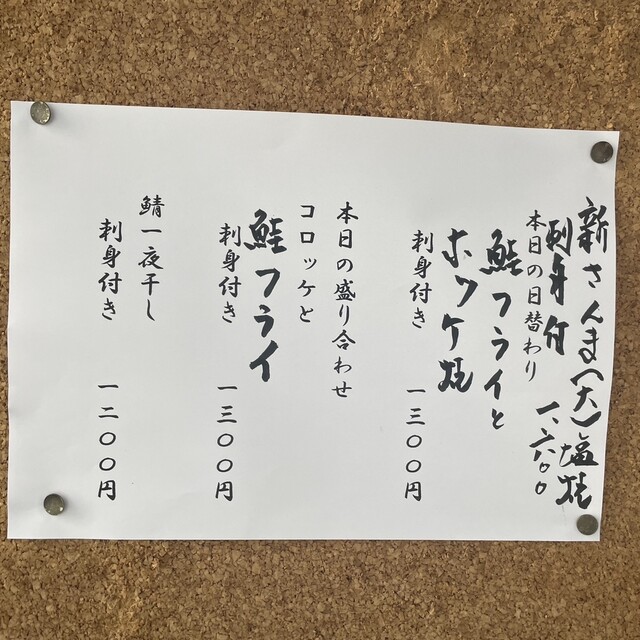 新さんま(大)塩焼
刺身付 一、六〇〇
本日の日替わり
鮭フライと
ホッケ焼
刺身付き 一三〇〇円
本日の盛り合わせ
コロッケと
鮭フライ
刺身付き 一三〇〇円
鯖一夜干し
刺身付き 一二〇〇円